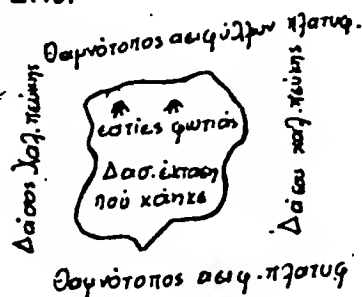 Θαμνότοπος αειφύλλων πλατυφ.
Δάσος χαλ. πεύκης
εστίες φωτιάς
Δασ. έκταση
πού κάηκε
Δάσος χαλ. πεύκης
Θαμνότοπος αειφ. πλατυφ.